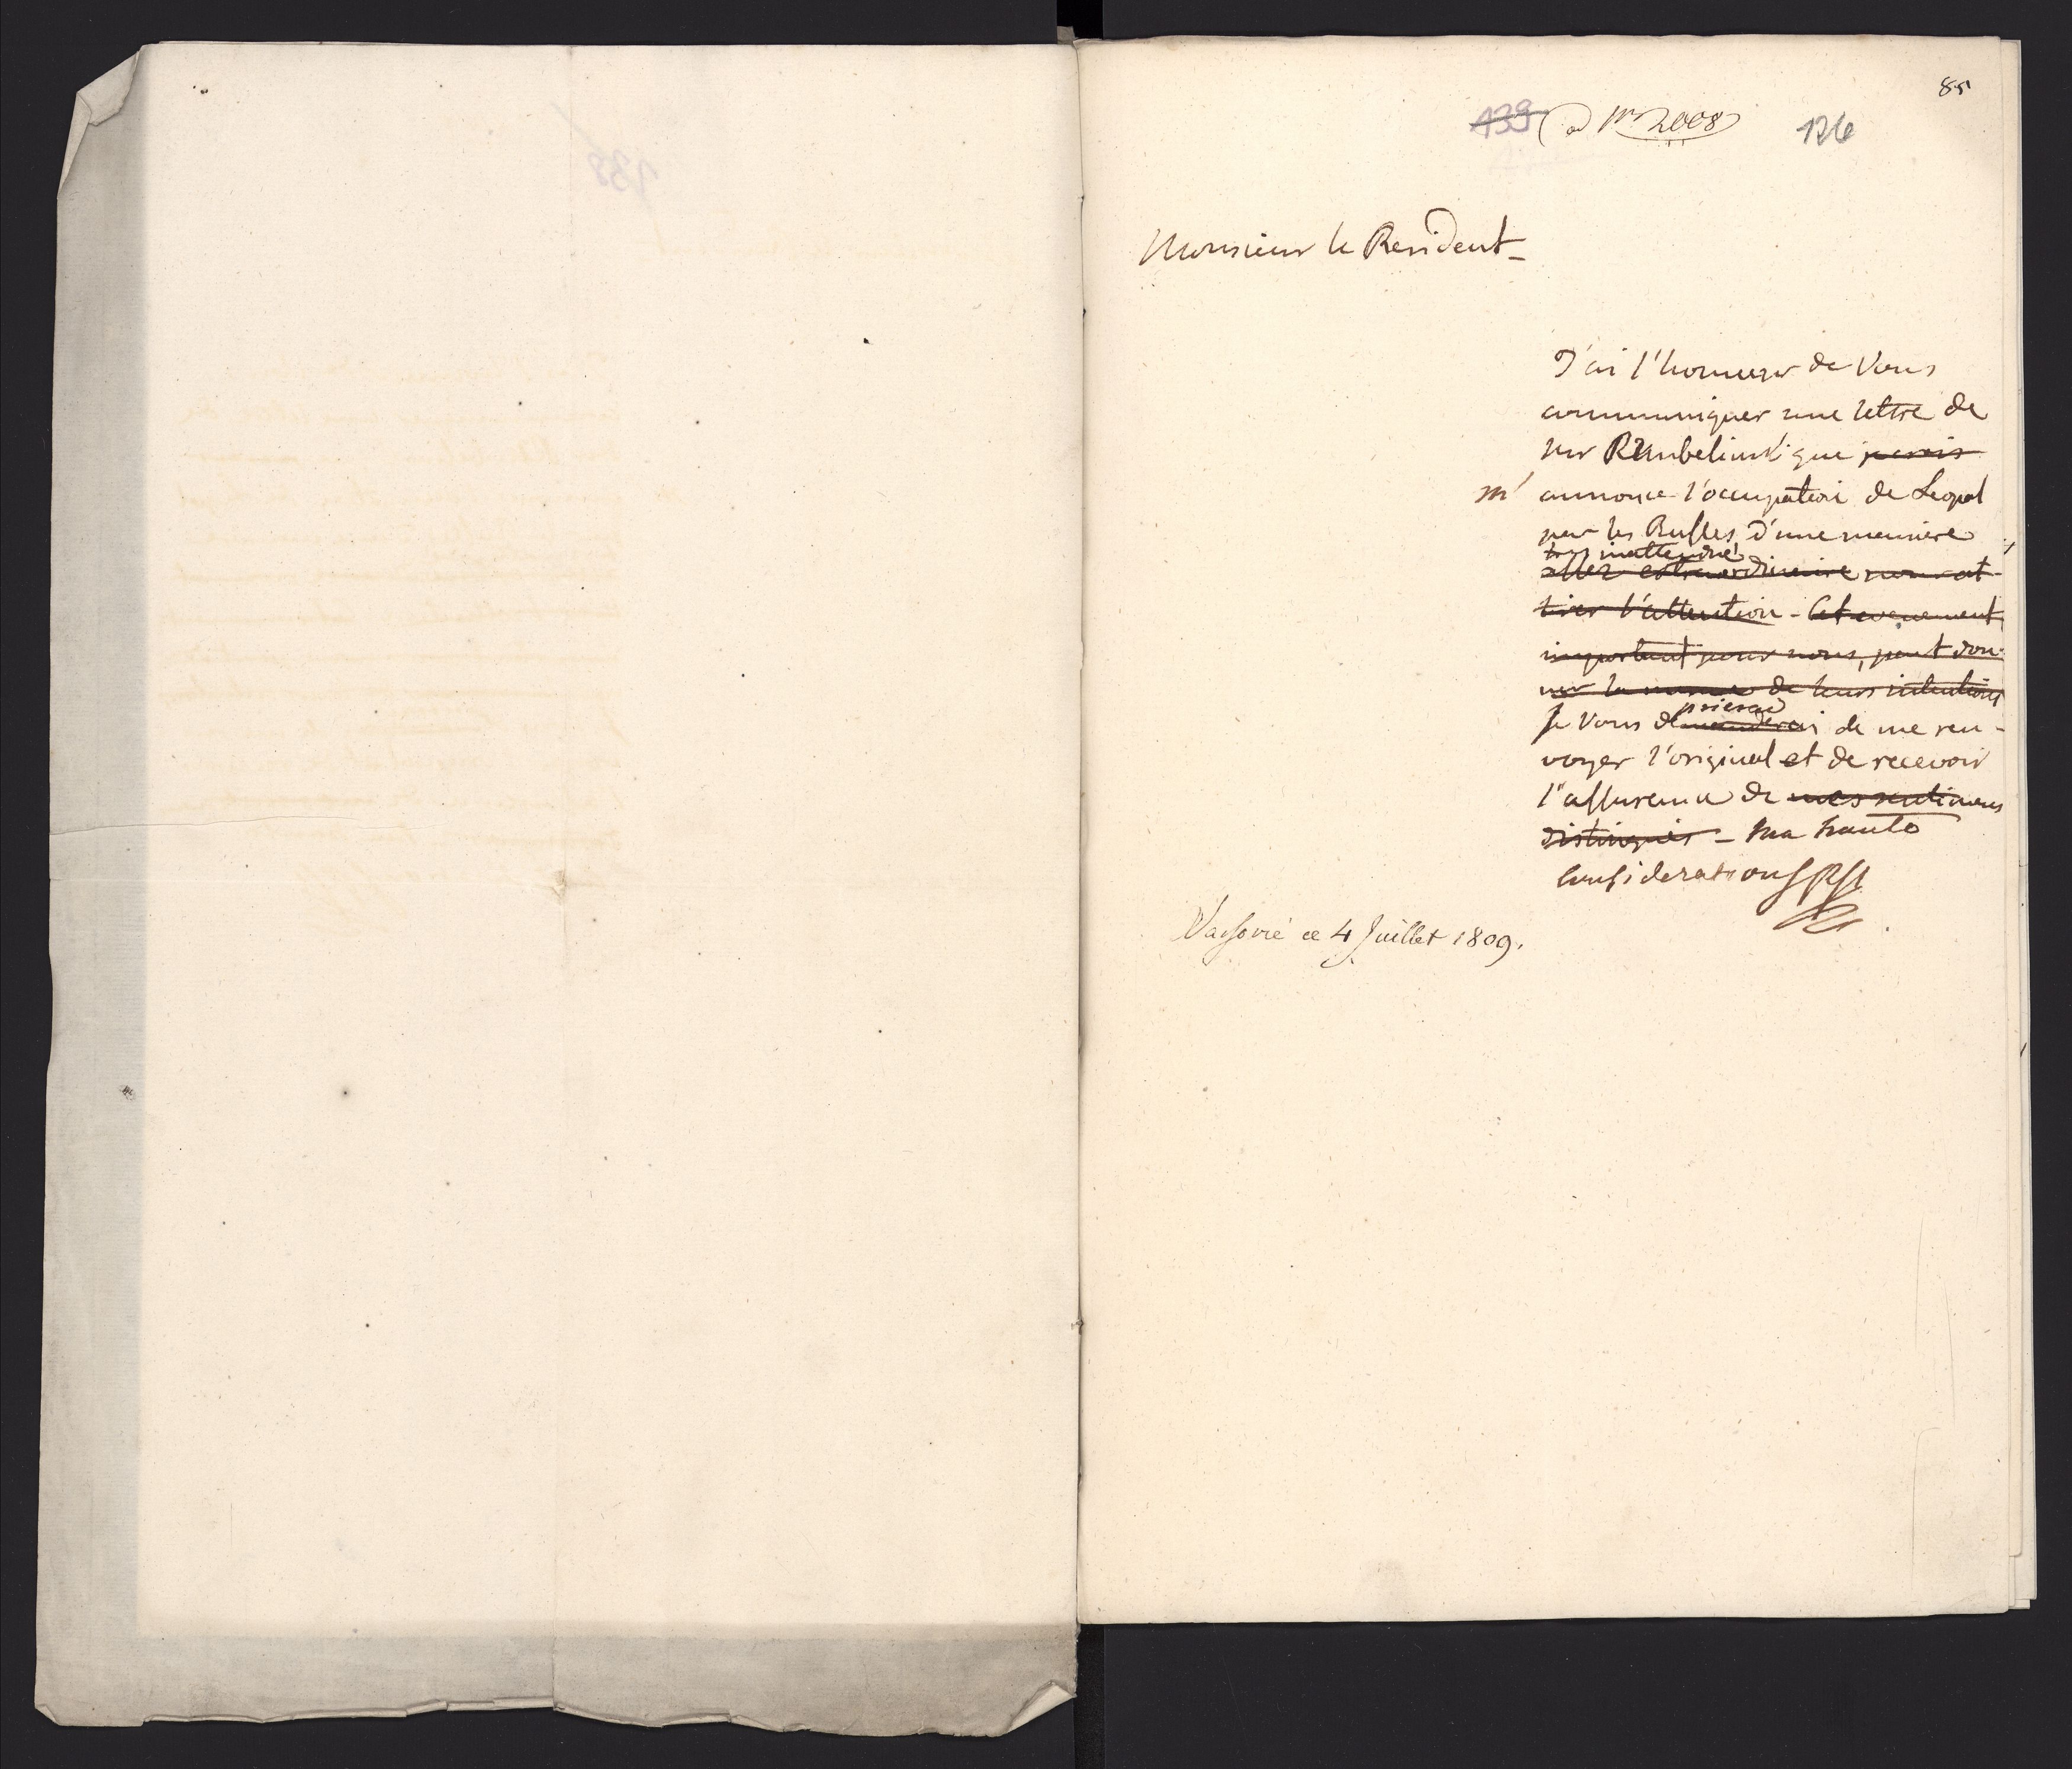 85
139 ad Nro 2008 126
Monsieur le Resident_
J'ai l'honneur de Vous
communiquer une lettre de
Mr Rembelinski que
m' annonce l'occupation de Leopol
par les Russes, d'une maniere
tres inattendue
assez extraordinaire pour at-
tirer l'attention - Cet evenement
important pour nous, peut don-
ner la mesure de leurs intentions
prierai
Je Vous demanderai de me ren-
voyer l'original et de recevoir
l'assurance de mes sentimens
distingués - Ma haute
Consideration
Varsovie ce 4 Juillet 1809.